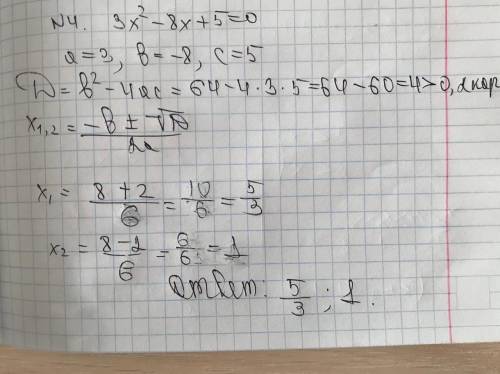 №4. 3x² - 8x + 5 = 0
a = 3, b = -8, c = 5
D = b² - 4ac = 64 - 4 · 3 · 5 = 64 - 60 = 4 > 0, 2 кор
x₁,₂ = (-b ± √D) / 2a
x₁ = (8 + 2) / 6 = 10/6 = 5/3
x₂ = (8 - 2) / 6 = 6/6 = 1
Ответ: 5/3 ; 1.